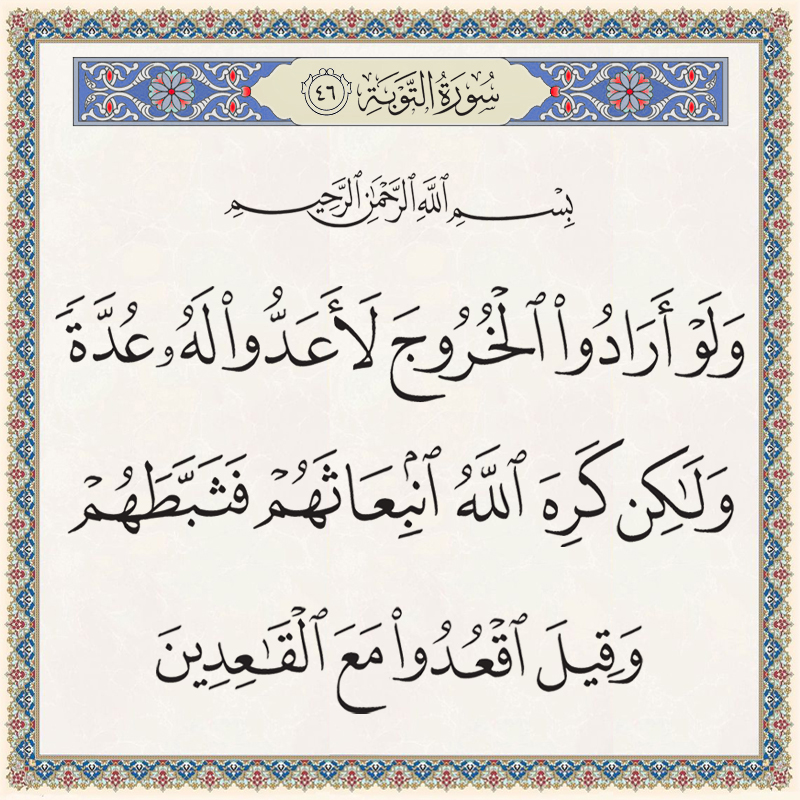 سُورَةُ التَّوْبَةِ ٤٦
بِسْمِ ٱللَّهِ ٱلرَّحْمَٰنِ ٱلرَّحِيمِ
وَلَوْ أَرَادُوا۟ ٱلْخُرُوجَ لَأَعَدُّوا۟ لَهُۥ عُدَّةً
وَلَٰكِن كَرِهَ ٱللَّهُ ٱنۢبِعَاثَهُمْ فَثَبَّطَهُمْ
وَقِيلَ ٱقْعُدُوا۟ مَعَ ٱلْقَٰعِدِينَ